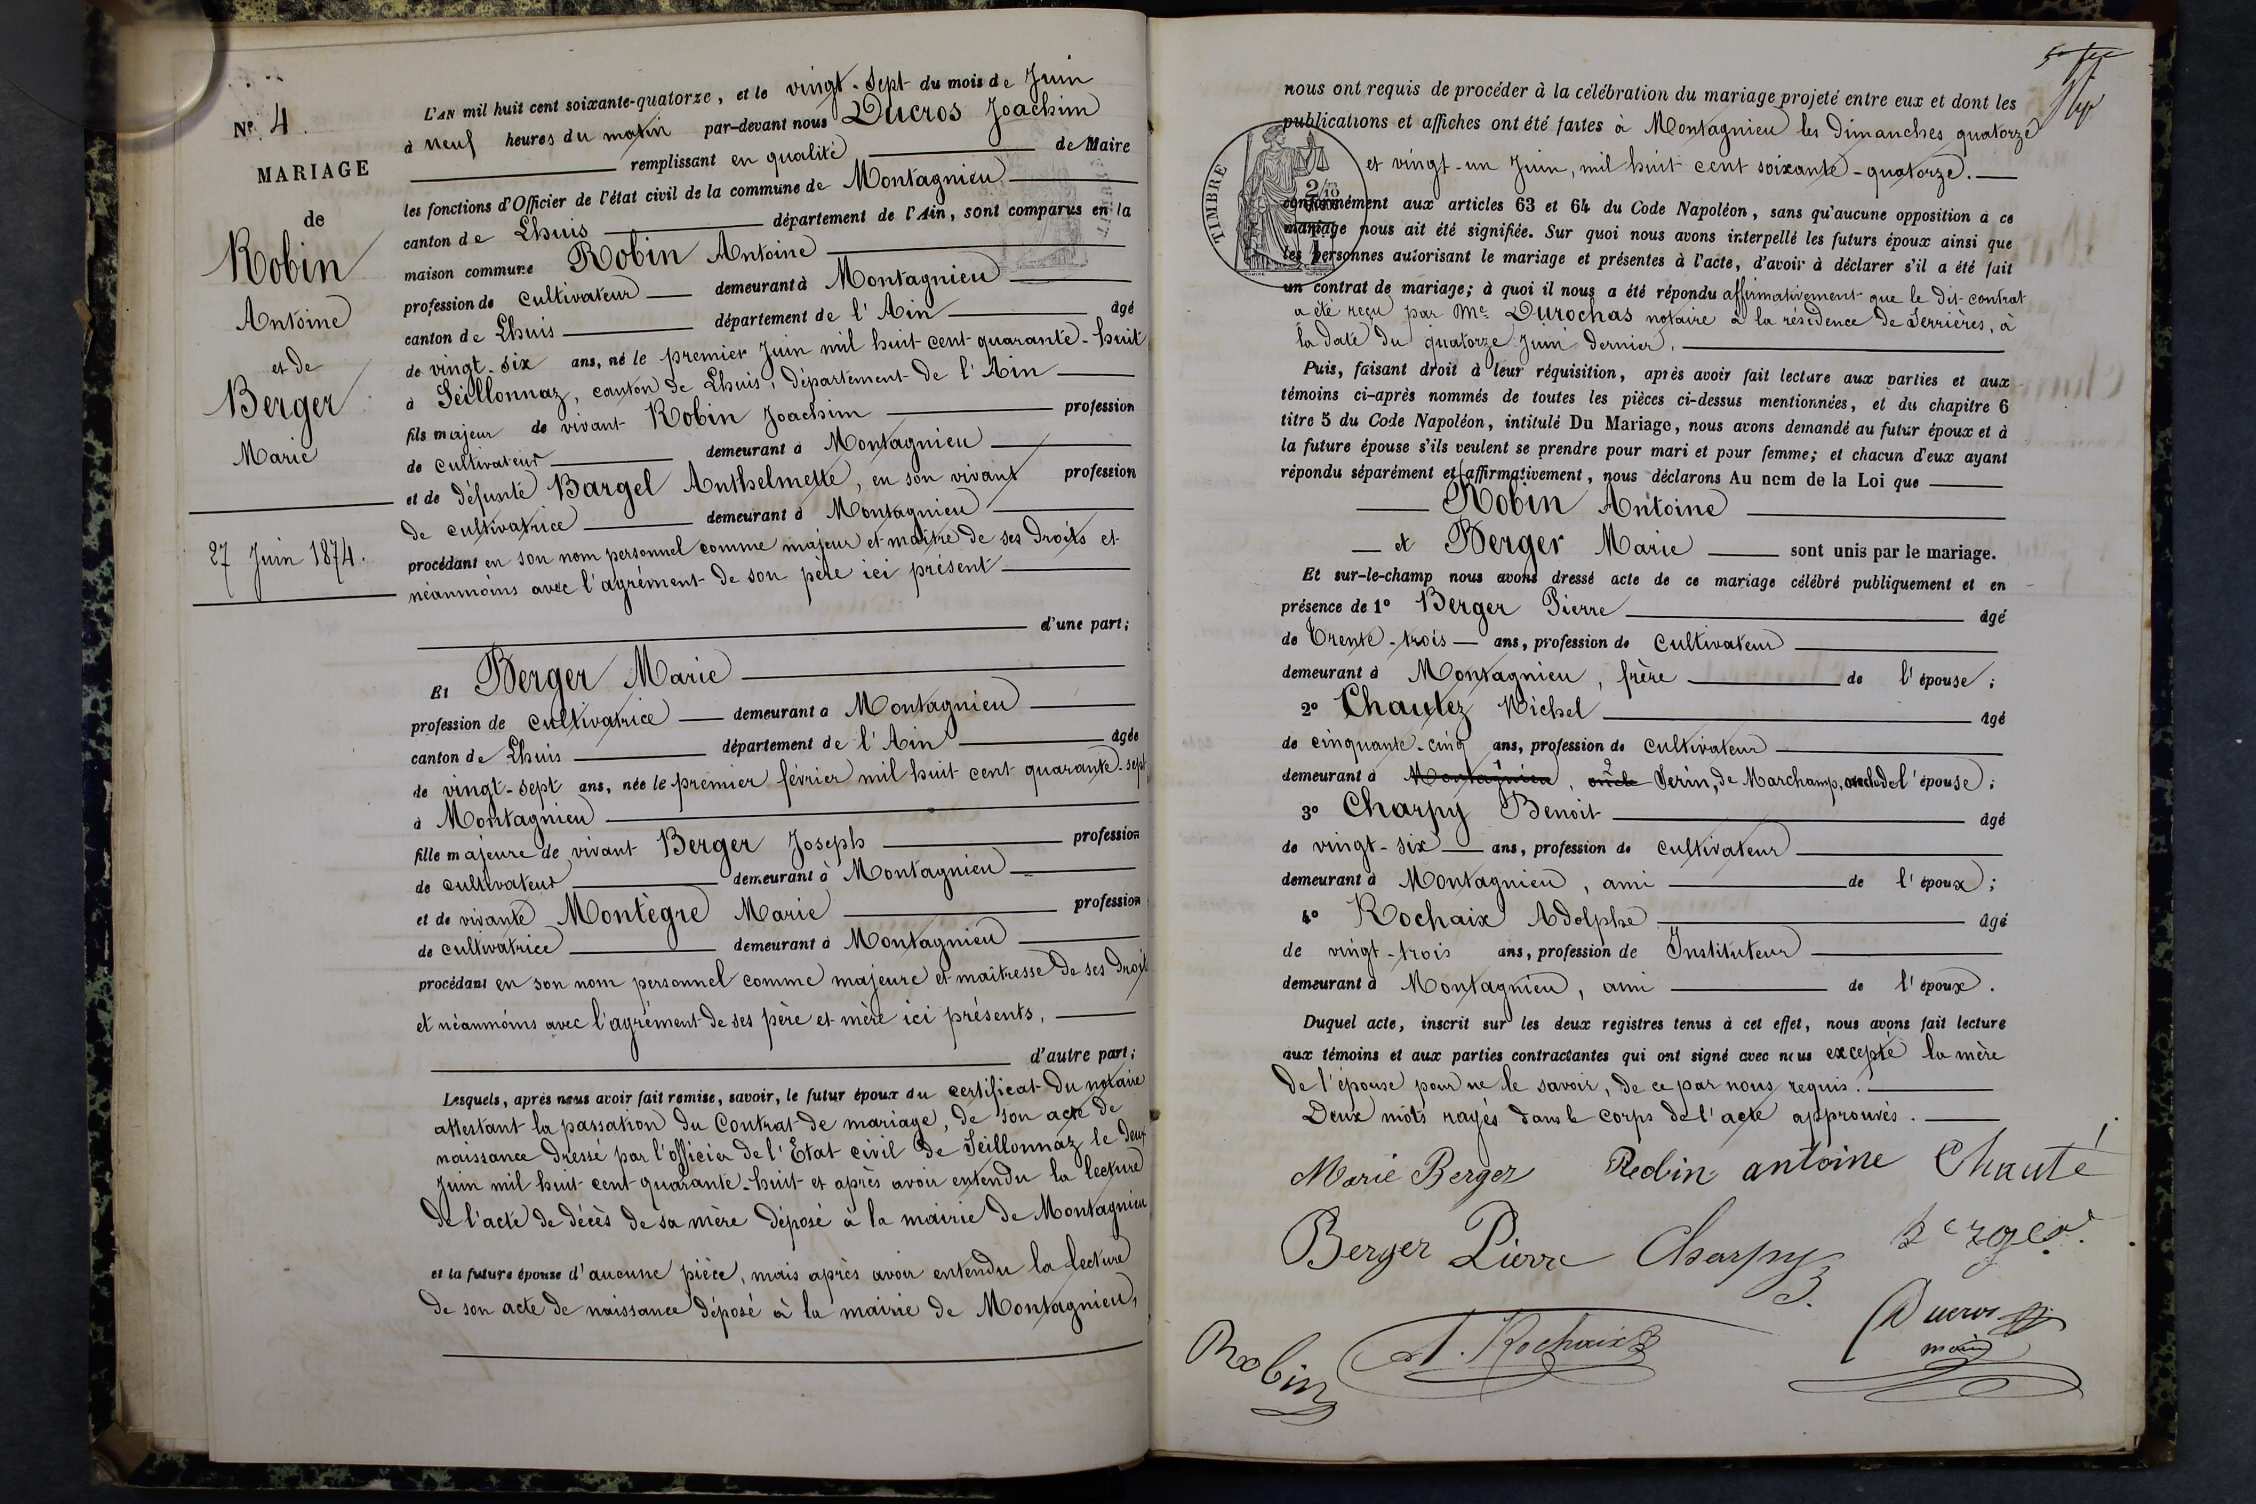 Nº 4.
MARIAGE
de
Robin
Antoine
et de
Berger
Marie
27 Juin 1874.
L'AN mil huit cent soixante-quatorze, et le vingt-sept du mois de Juin
à neuf heures du matin par-devant nous Ducros Joachim
remplissant en qualité de Maire
les fonctions d'Officier de l'état civil de la commune de Montagnieu
canton de Lhuis département de l'Ain, sont comparus en la
maison commune Robin Antoine
profession de cultivateur demeurant à Montagnieu
canton de Lhuis département de l'Ain âgé
de vingt-six ans, né le premier Juin mil huit cent quarante-huit
à Seillonnaz, canton de Lhuis, département de l'Ain
fils majeur de vivant Robin Joachim profession
de cultivateur demeurant à Montagnieu
et de défunte Bargel Anthelmette, en son vivant profession
de cultivatrice demeurant à Montagnieu
procédant en son nom personnel comme majeur et maître de ses droits et
néanmoins avec l'agrément de son père ici présent
d'une part;
Et Berger Marie
profession de cultivatrice demeurant à Montagnieu
canton de Lhuis département de l'Ain âgée
de vingt-sept ans, née le premier février mil huit cent quarante-sept
à Montagnieu
fille majeure de vivant Berger Joseph profession
de cultivateur demeurant à Montagnieu
et de vivante Montègre Marie profession
de cultivatrice demeurant à Montagnieu
procédant en son nom personnel comme majeure et maîtresse de ses droits
et néanmoins avec l'agrément de ses père et mère ici présents,
d'autre part;
Lesquels, après nous avoir fait remise, savoir, le futur époux du certificat du notaire
attestant la passation du Contrat de mariage, de son acte de
naissance dressé par l'officier de l'Etat civil de Seillonnaz le deux
Juin mil huit cent quarante-huit et après avoir entendu la lecture
de l'acte de décès de sa mère déposé à la mairie de Montagnieu
et la future épouse d'aucune pièce, mais après avoir entendu la lecture
de son acte de naissance déposé à la mairie de Montagnieu,
nous ont requis de procéder à la célébration du mariage projeté entre eux et dont les
publications et affiches ont été faites à Montagnieu les dimanches quatorze
et vingt-un Juin, mil huit cent soixante-quatorze.
TIMBRE
2/10
conformément aux articles 63 et 64 du Code Napoléon, sans qu'aucune opposition à ce
mariage nous ait été signifiée. Sur quoi nous avons interpellé les futurs époux ainsi que
les personnes autorisant le mariage et présentes à l'acte, d'avoir à déclarer s'il a été fait
un contrat de mariage; à quoi il nous a été répondu affirmativement que le dit contrat
a été reçu par Me Durochas notaire à la résidence de Serrières, à
la date du quatorze Juin dernier.
Puis, faisant droit à leur réquisition, après avoir fait lecture aux parties et aux
témoins ci-après nommés de toutes les pièces ci-dessus mentionnées, et du chapitre 6
titre 5 du Code Napoléon, intitulé Du Mariage, nous avons demandé au futur époux et à
la future épouse s'ils veulent se prendre pour mari et pour femme; et chacun d'eux ayant
répondu séparément et affirmativement, nous déclarons Au nom de la Loi que
Robin Antoine
et Berger Marie sont unis par le mariage.
Et sur-le-champ nous avons dressé acte de ce mariage célébré publiquement et en
présence de 1º Berger Pierre âgé
de Trente-trois ans, profession de cultivateur
demeurant à Montagnieu, frère de l'épouse;
2º Chautez Michel âgé
de cinquante-cinq ans, profession de cultivateur
demeurant à Montagnieu, oncle Serin, de Marchamp, oncle de l'épouse;
3º Charpy Benoit âgé
de vingt-six ans, profession de cultivateur
demeurant à Montagnieu, ami de l'époux;
4º Rochaix Adolphe âgé
de vingt-trois ans, profession de Instituteur
demeurant à Montagnieu, ami de l'époux.
Duquel acte, inscrit sur les deux registres tenus à cet effet, nous avons fait lecture
aux témoins et aux parties contractantes qui ont signé avec nous excepté la mère
de l'épouse pour ne le savoir, de ce par nous requis.
Deux mots rayés dans le corps de l'acte approuvés.
Marie Berger Robin antoine Chauté
Berger Pierre Charpy B. berger
Robin A. Rochaix Ducros
maire